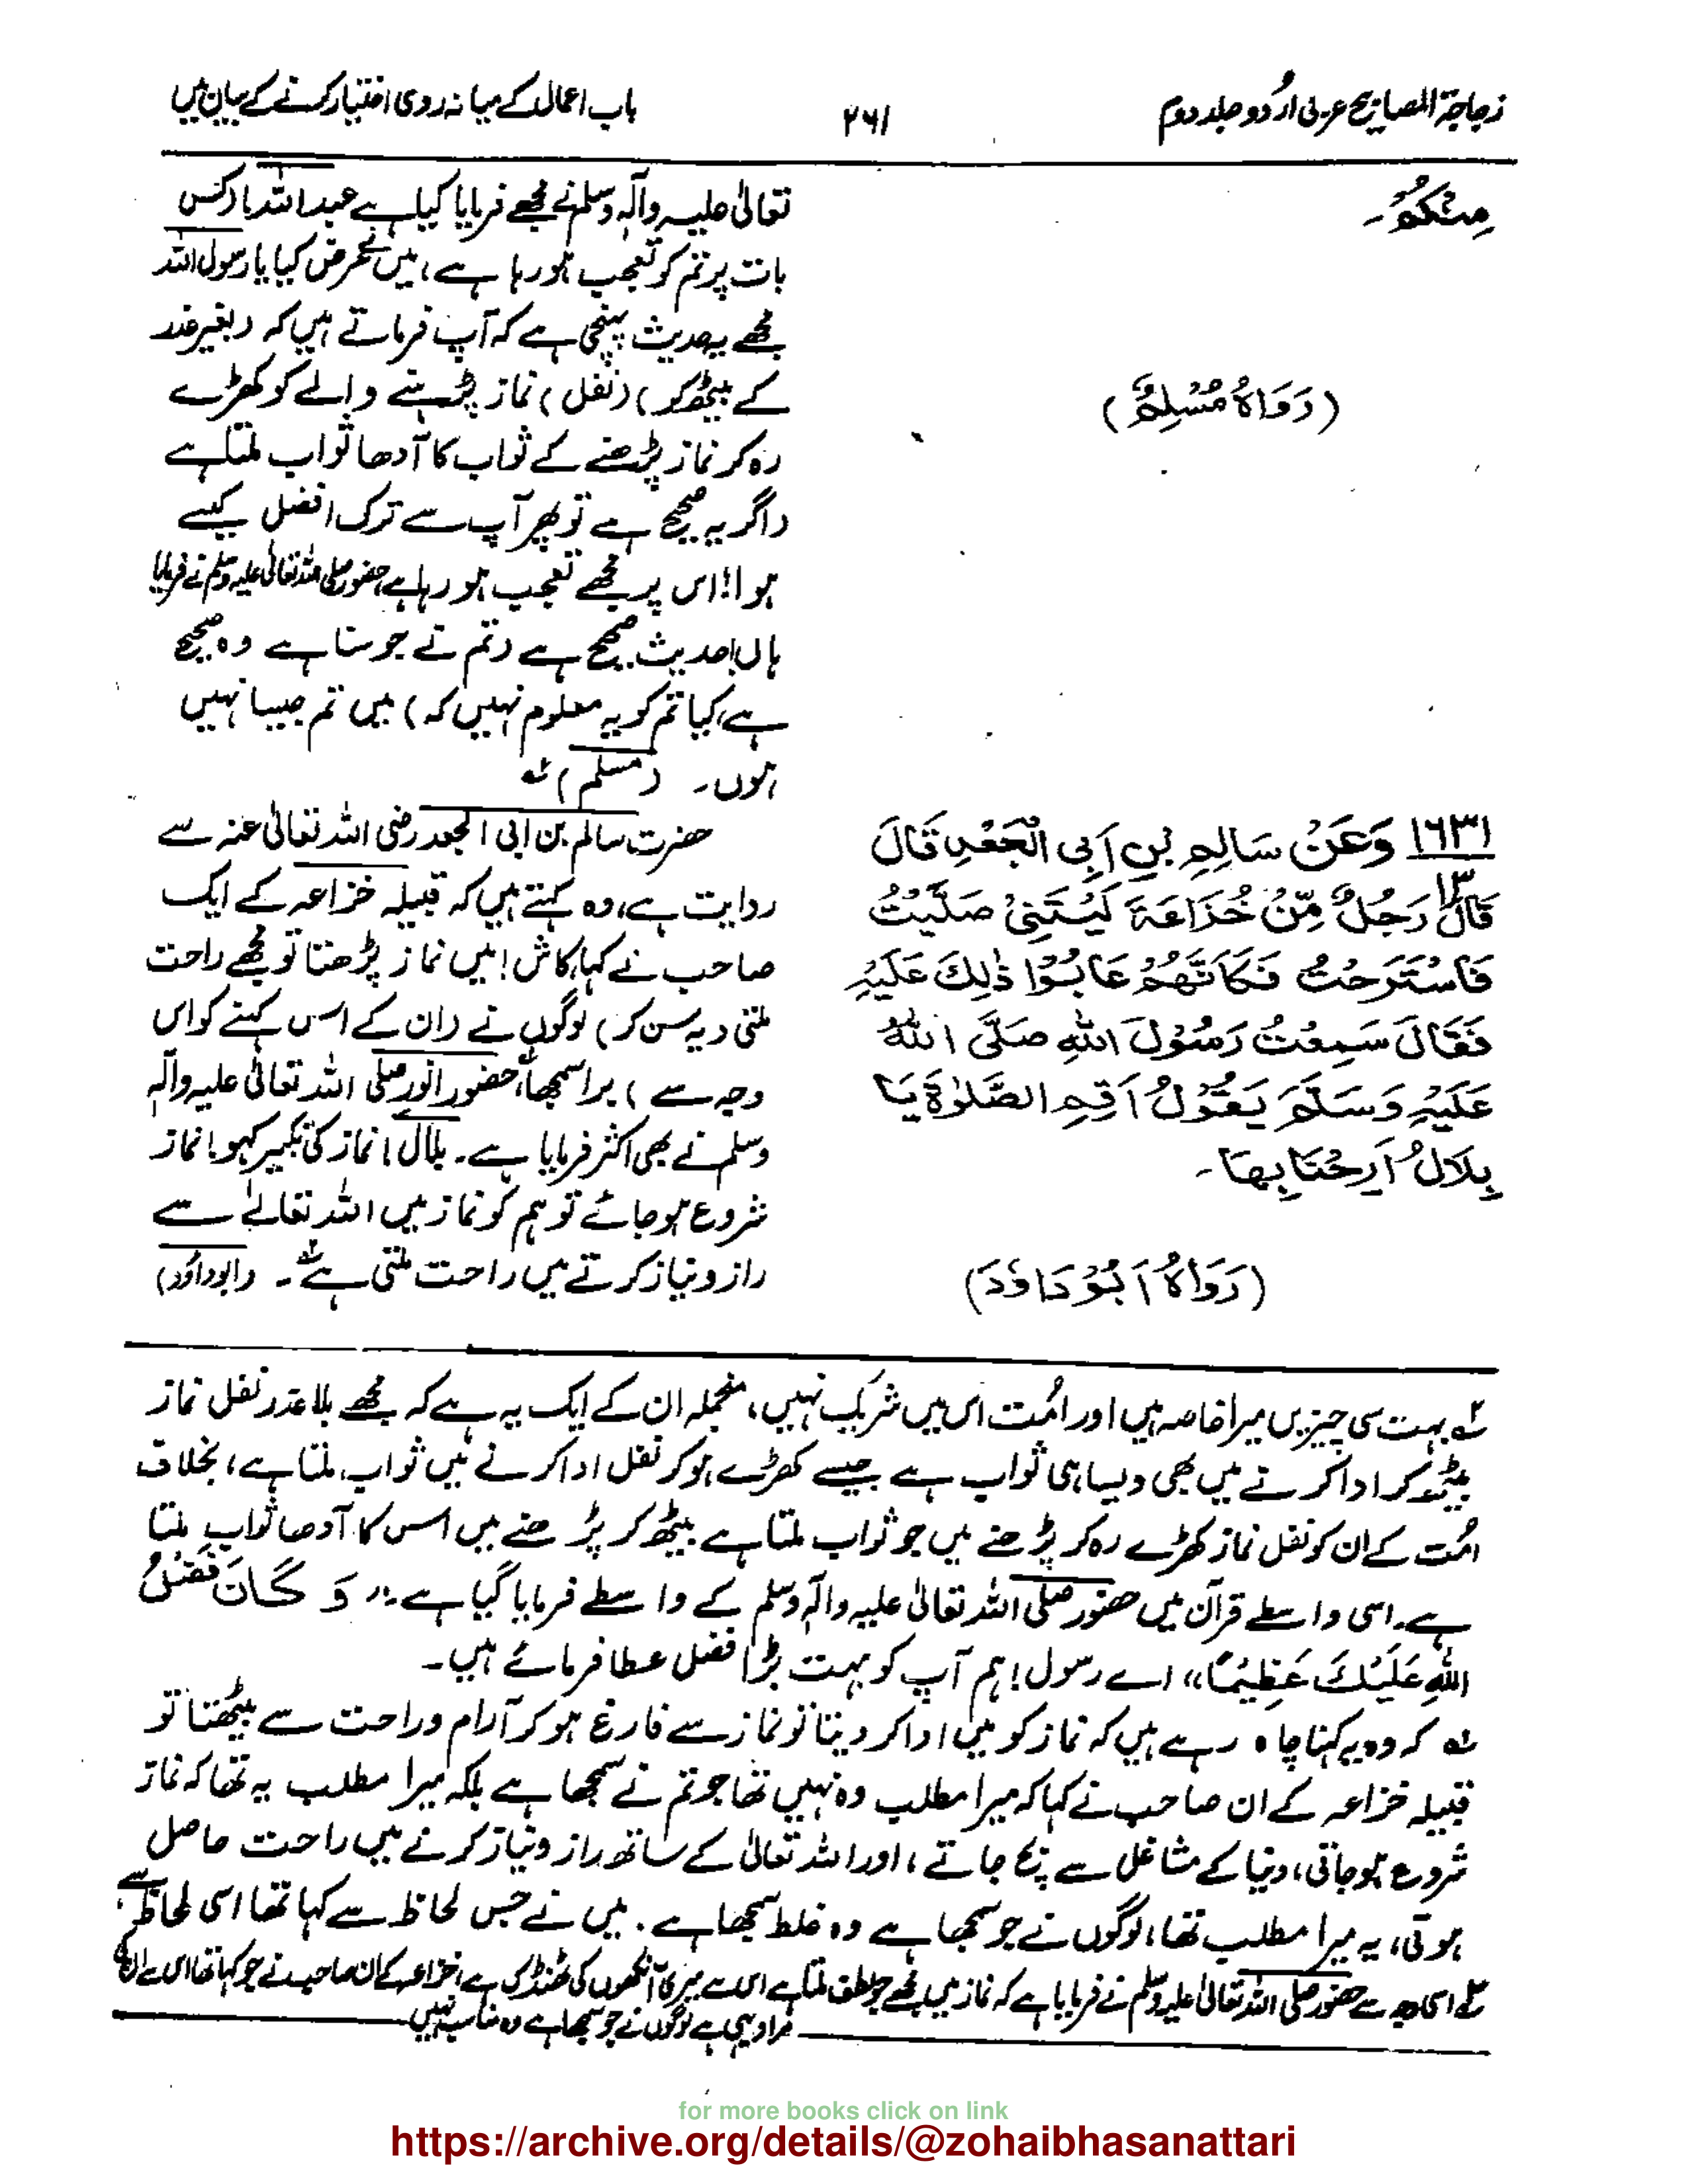 زجاجۃ المصابیح عربی اردو جلد دوم
۲۶۱
باب اعمال کے میانہ روی اختیار کرنے کے بیان میں
مِنْکُمْ۔
(رَوَاہُ مُسْلِمٌ)
تعالیٰ علیہ وآلہ وسلم نے مجھے فرمایا کیا ہے عبداللہ! کس
بات پر تم کو تعجب ہو رہا ہے، میں نے عرض کیا یا رسول اللہ
مجھے یہ حدیث پہنچی ہے کہ آپ فرماتے ہیں کہ (بغیر عذر
کے بیٹھ کر) (نفل) نماز پڑہنے والے کو کھڑے
رہ کر نماز پڑھنے کے ثواب کا آدھا ثواب ملتا ہے
(اگر یہ صحیح ہے تو پھر آپ سے ترک افضل کیسے
ہوا!! اس پر مجھے تعجب ہو رہا ہے، حضور صلی اللہ تعالیٰ علیہ وسلم نے فرمایا
ہاں! حدیث صحیح ہے (تم نے جو سنا ہے وہ صحیح
ہے، کیا تم کو یہ معلوم نہیں کہ) میں تم جیسا نہیں
ہوں۔ (مسلم) لہ
۱۶۳۱ وَعَنْ سَالِمِ بْنِ اَبِی الْجَعْدِ قَالَ
۱۳
قَالَ رَجُلٌ مِّنْ خُزَاعَۃَ لَیْتَنِیْ صَلَّیْتُ
فَاسْتَرَحْتُ فَکَاَنَّھُمْ عَابُوْا ذٰلِکَ عَلَیْہِ
فَقَالَ سَمِعْتُ رَسُوْلَ اللہِ صَلَّی اللہُ
عَلَیْہِ وَسَلَّمَ یَقُوْلُ اَقِمِ الصَّلٰوۃَ یَا
بِلَالُ اَرِحْنَا بِھَا۔
(رَوَاہُ اَبُوْ دَاوٗدَ)
حضرت سالم بن ابی الجعد رضی اللہ تعالیٰ عنہ سے
روایت ہے، وہ کہتے ہیں کہ قبیلہ خزاعہ کے ایک
صاحب نے کہا، کاش! میں نماز پڑھتا تو مجھے راحت
ملتی (یہ سن کر) لوگوں نے (ان کے اس کہنے کو اس
وجہ سے) برا سمجھا، حضور انور صلی اللہ تعالیٰ علیہ وآلہ
وسلم نے بھی اکثر فرمایا ہے۔ بلال! نماز کی تکبیر کہو! نماز
شروع ہو جائے تو ہم کو نماز میں اللہ تعالیٰ سے
راز و نیاز کرتے میں راحت ملتی ہے۔ (ابوداؤد)
لہ بہت سی چیزیں میرا خاصہ ہیں اور امت اس میں شریک نہیں، منجملہ ان کے ایک یہ ہے کہ مجھے بلا عذر نفل نماز
بیٹھ کر ادا کرنے میں بھی ویسا ہی ثواب ہے جیسے کھڑے ہو کر نفل ادا کرنے میں ثواب ملتا ہے، بخلاف
امت کے ان کو نفل نماز کھڑے رہ کر پڑھنے میں جو ثواب ملتا ہے بیٹھ کر پڑھنے میں اس کا آدھا ثواب ملتا
ہے۔ اسی واسطے قرآن میں حضور صلی اللہ تعالیٰ علیہ وآلہ وسلم کے واسطے فرمایا گیا ہے: "وَ کَانَ فَضْلُ
اللہِ عَلَیْکَ عَظِیْمًا" اے رسول! ہم آپ کو بہت بڑا فضل عطا فرمائے ہیں۔
کہ وہ یہ کہنا چاہ رہے ہیں کہ نماز کو میں ادا کر دیتا تو نماز سے فارغ ہو کر آرام و راحت سے بیٹھتا تو
قبیلہ خزاعہ کے ان صاحب نے کہا کہ میرا مطلب وہ نہیں تھا جو تم نے سمجھا ہے بلکہ میرا مطلب یہ تھا کہ نماز
شروع ہو جاتی، دنیا کے مشاغل سے بچ جاتے، اور اللہ تعالیٰ کے ساتھ راز و نیاز کرنے میں راحت حاصل
ہوتی، یہ میرا مطلب تھا، لوگوں نے جو سمجھا ہے وہ غلط سمجھا ہے۔ میں نے جس لحاظ سے کہا تھا اسی لحاظ سے
اسی وجہ سے حضور صلی اللہ تعالیٰ علیہ وسلم نے فرمایا ہے کہ نماز میں مجھے جو لطف ملتا ہے اس سے میری آنکھوں کی ٹھنڈک ہے، خزاعہ کے ان صاحب نے جو کہا تھا اس سے ان کی
مراد یہی ہے لوگوں نے جو سمجھا ہے وہ مناسب نہیں
for more books click on link
https://archive.org/details/@zohaibhasanattari